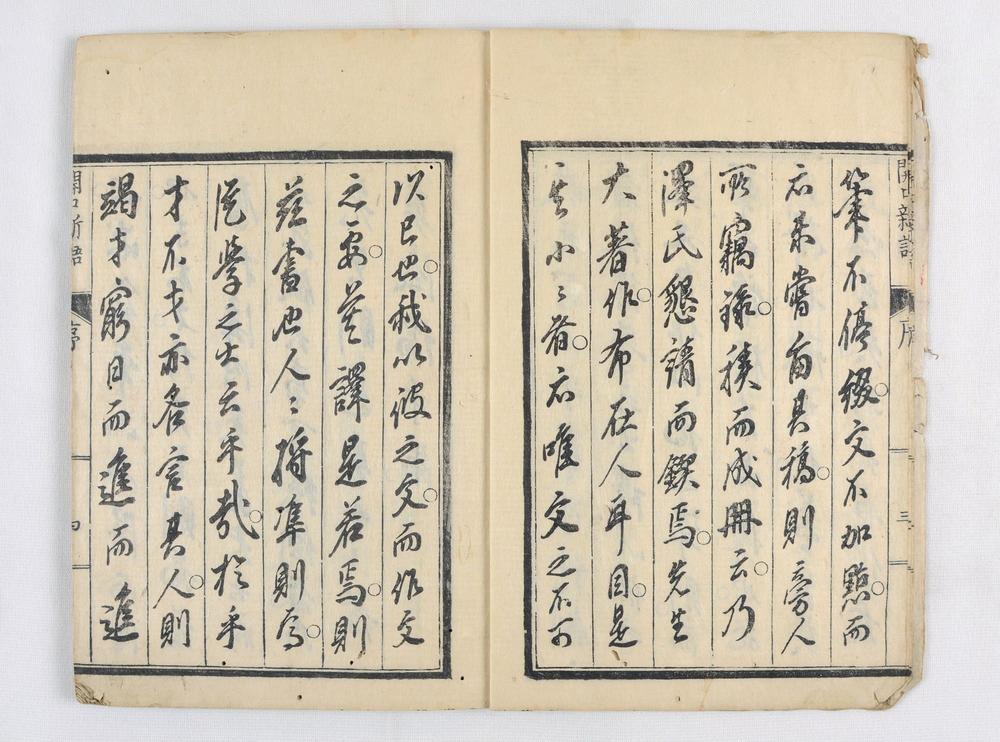 開口新語 序 三
筆不停綴○文不加點○而
亦未嘗留其稿○則旁人
所竊錄○積而成冊云○乃
澤氏懇請而鍥焉○先生
大著作○布在人耳目○是
其小〻者○亦唯文之不可
以已也○我以彼之文○而作文
之要○並譯是若焉○則
茲書也人〻將準則焉○
從學之士云乎哉○於乎
才不才亦各言其人○則
竭才窮日而進而進
開口新語 序 四